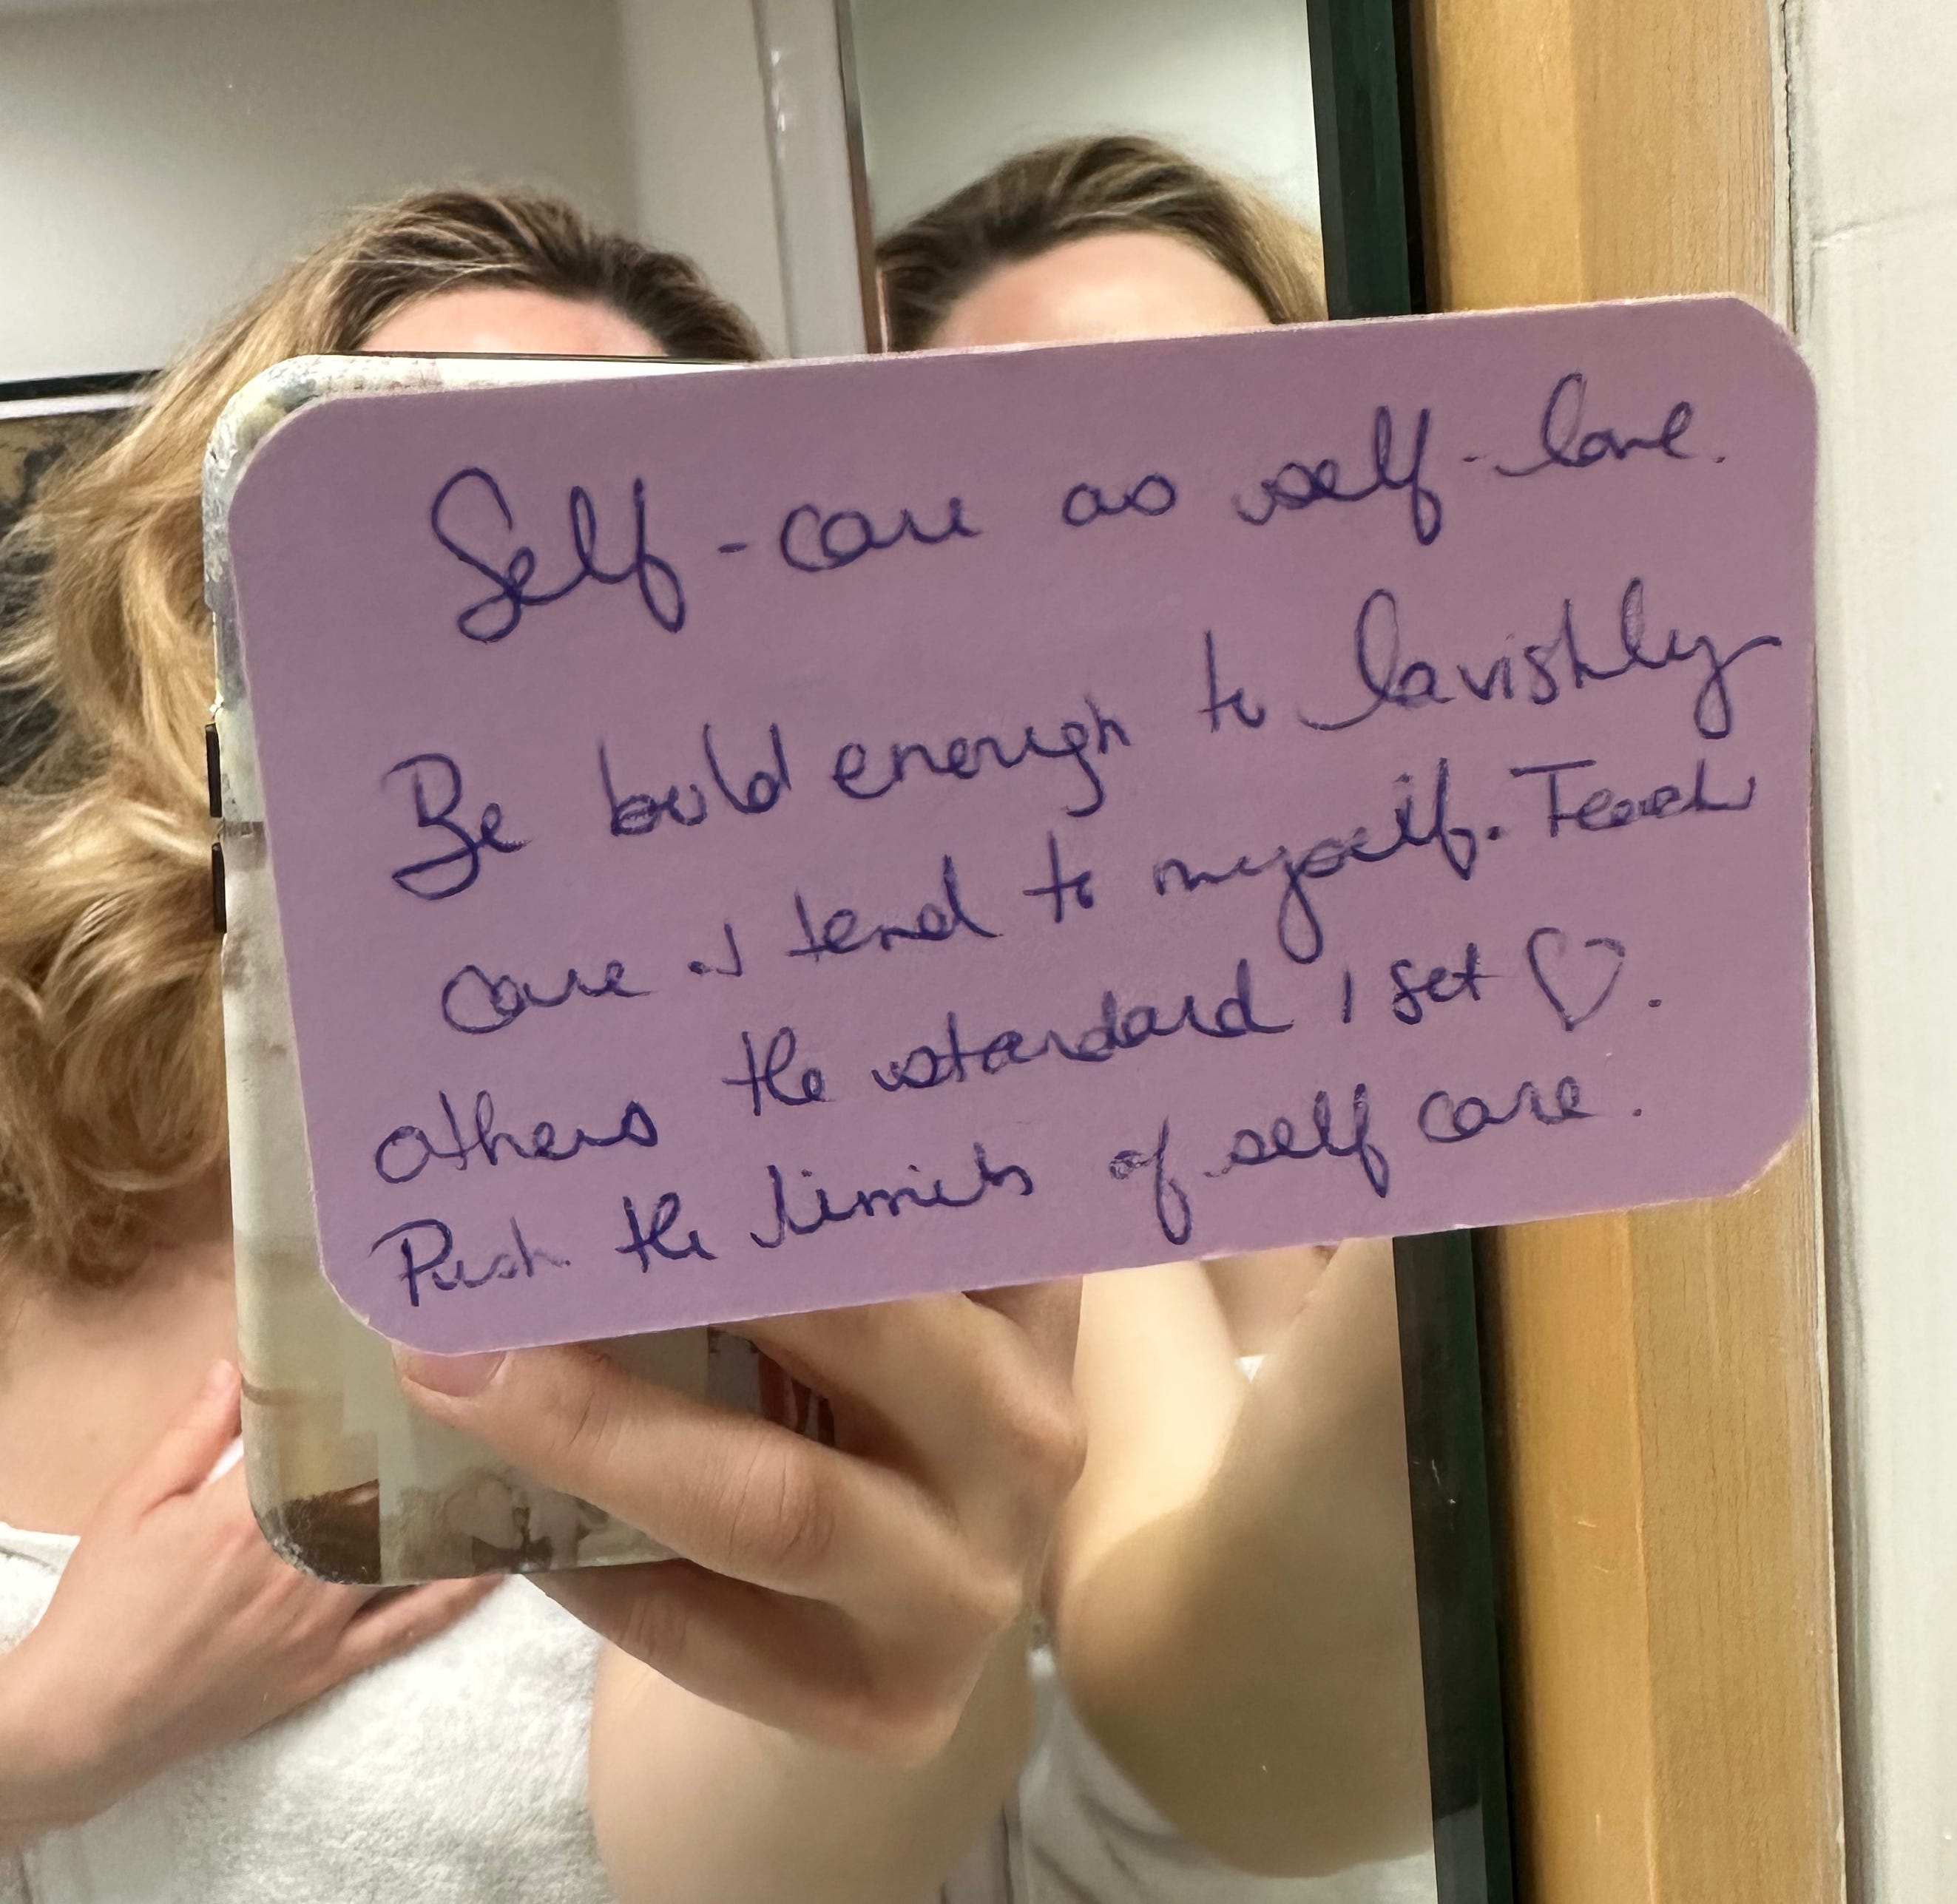 Self-care as self-love.
Be bold enough to lavishly
care & tend to myself. Teach
others the standard I set ♡.
Push the limits of self care.